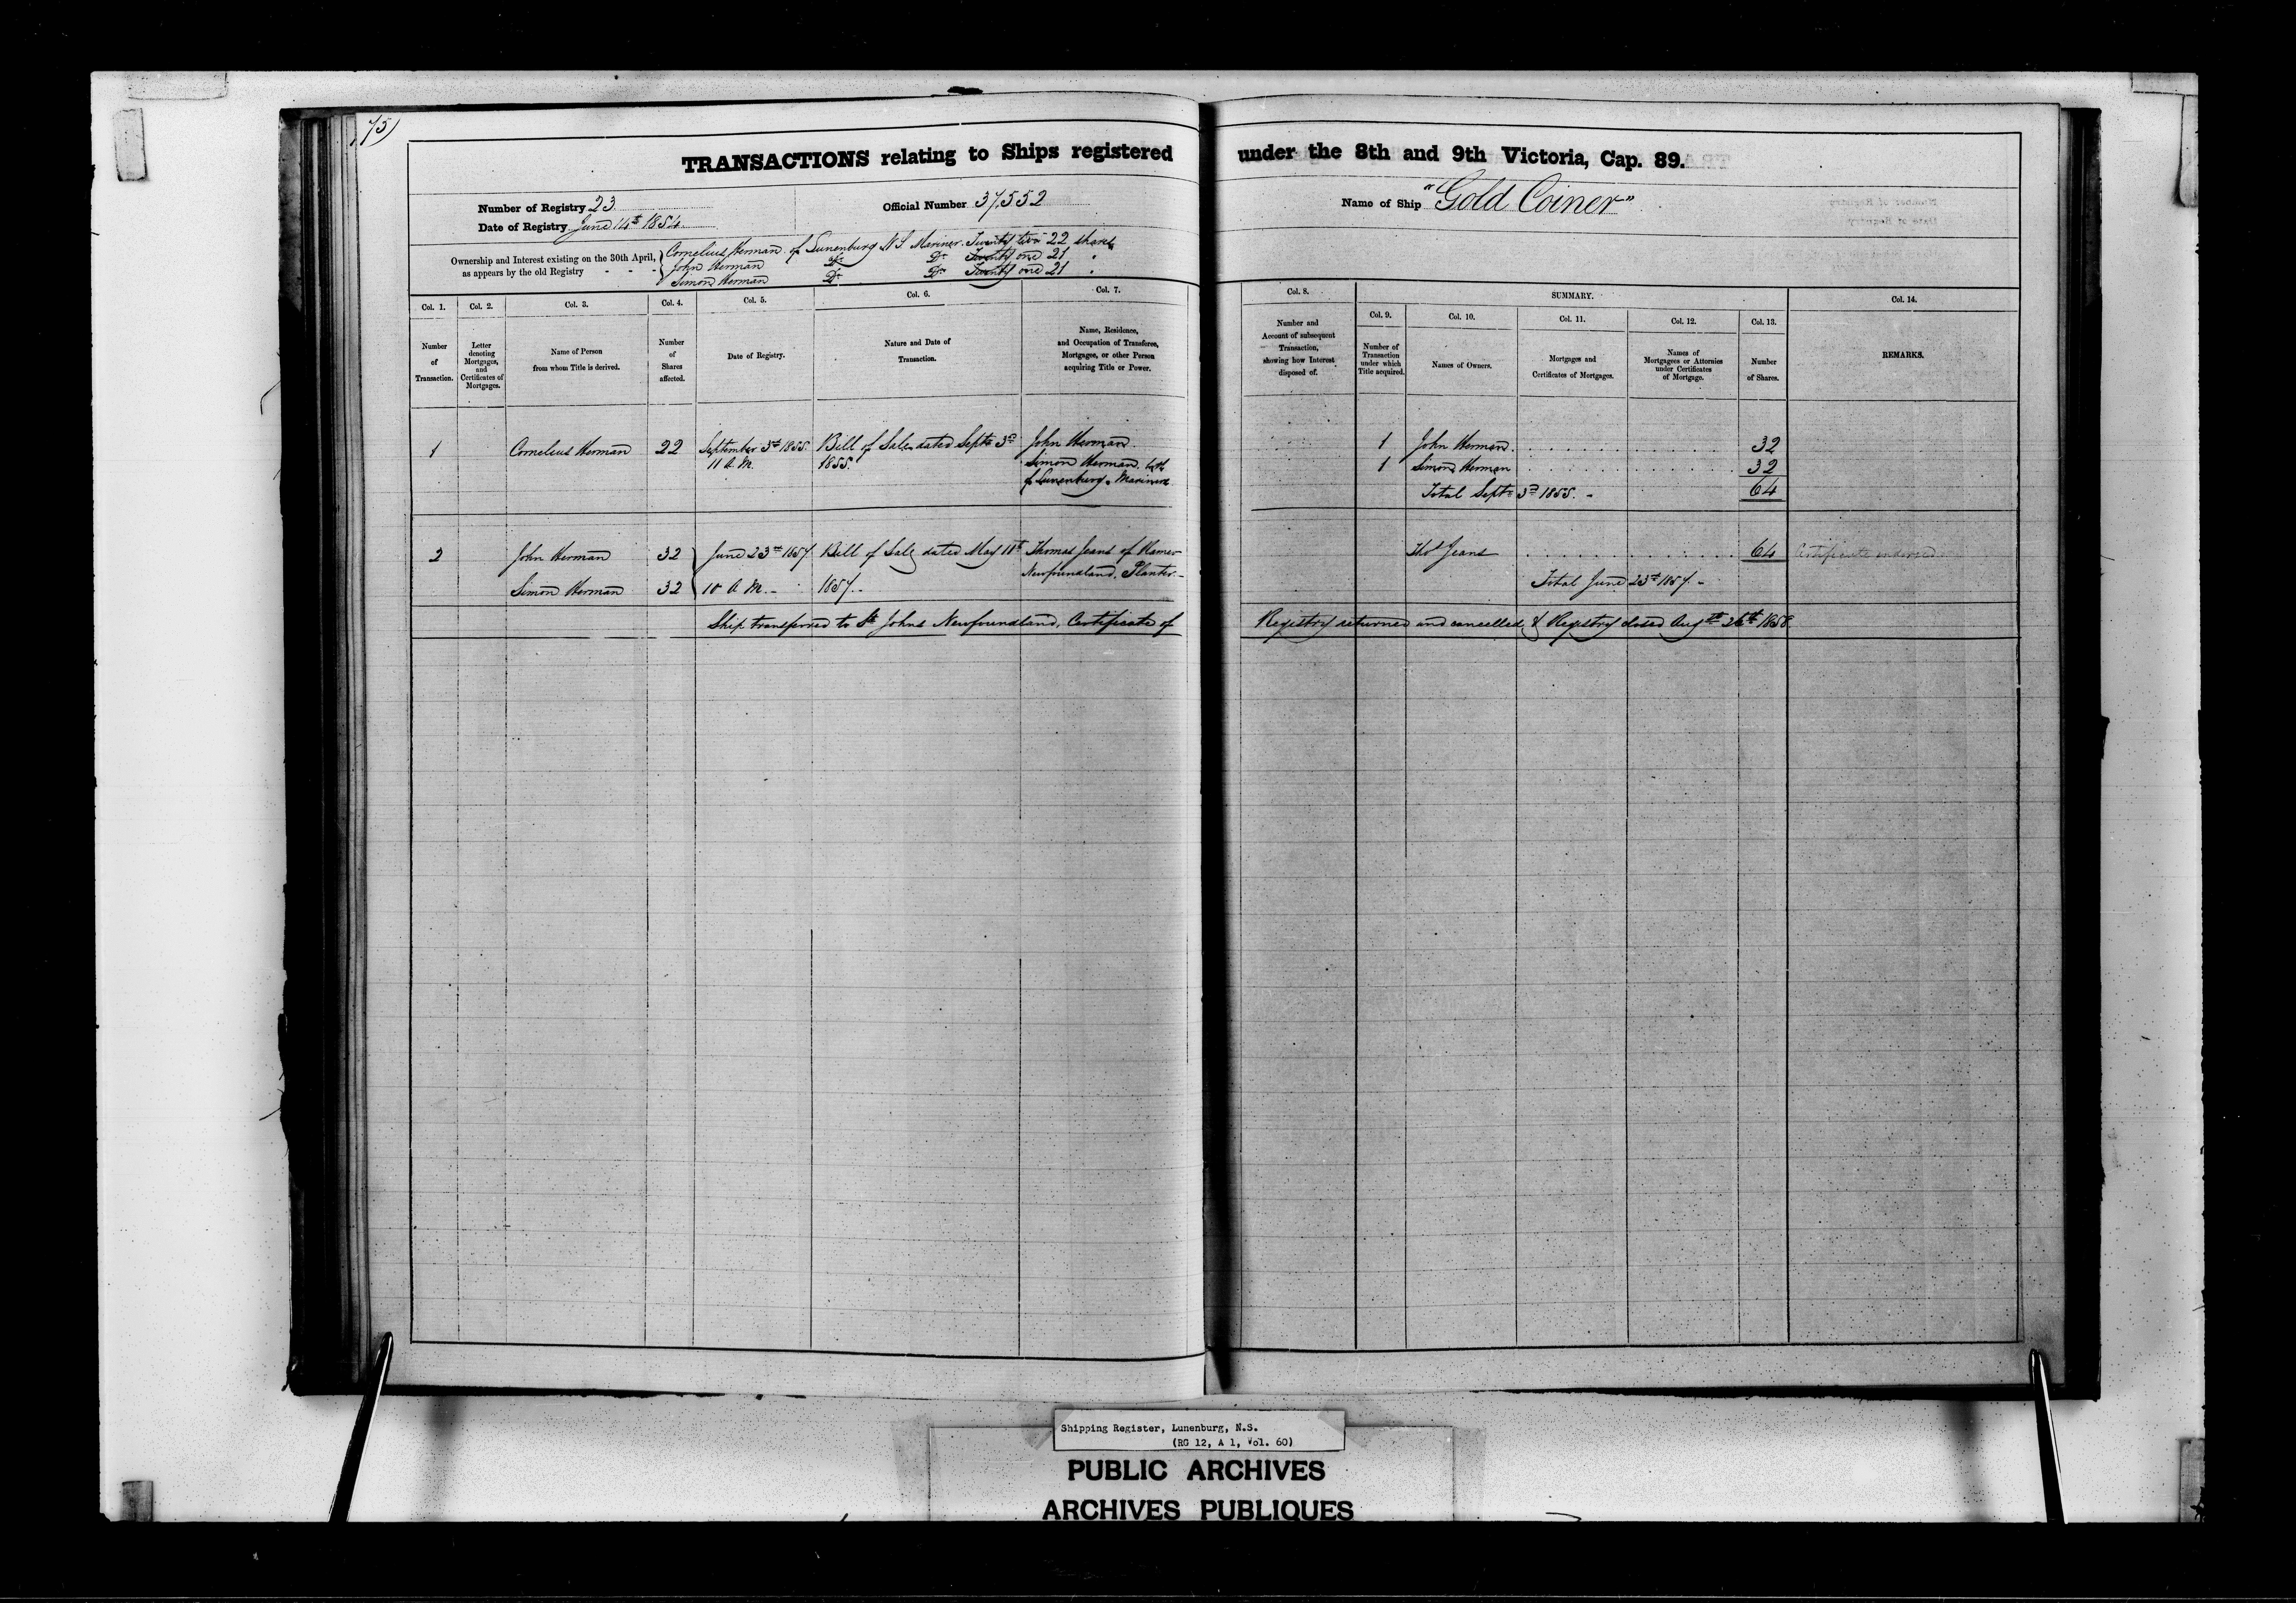 75)
TRANSACTIONS relating to Ships registered under the 8th and 9th Victoria, Cap. 89.
Number of Registry 23
Date of Registry June 14th 1854
Official Number 37,552
Name of Ship "Gold Coiner"
Ownership and Interest existing on the 30th April,
as appears by the old Registry - - -
Cornelius Herman of Lunenburg N S Mariner Twenty two 22 shares
John Herman Do Do Twenty one 21 "
Simon Herman Do Do Twenty one 21 "
Col. 1. Col. 2. Col. 3. Col. 4. Col. 5. Col. 6. Col. 7.
Number of Transaction.
Letter denoting Mortgages, and Certificates of Mortgages.
Name of Person from whom Title is derived.
Number of Shares affected.
Date of Registry.
Nature and Date of Transaction.
Name, Residence, and Occupation of Transferee, Mortgagee, or other Person acquiring Title or Power.
Col. 8. SUMMARY. Col. 14.
Col. 9. Col. 10. Col. 11. Col. 12. Col. 13.
Number and Account of subsequent Transaction, showing how Interest disposed of.
Number of Transaction under which Title acquired.
Names of Owners.
Mortgages and Certificates of Mortgages.
Names of Mortgagees or Attornies under Certificates of Mortgage.
Number of Shares.
REMARKS.
1 Cornelius Herman 22 September 3rd 1855. Bill of Sale dated Septr 3rd John Herman
11 A.M. 1855. Simon Herman both
of Lunenburg Mariners
1 John Herman 32
1 Simon Herman 32
Total Septr 3rd 1855. - 64
2 John Herman 32 June 23rd 1857 Bill of Sale dated May 11th Thomas Jeans of
Newfoundland, Planter -
Simon Herman 32 10 A M. - 1857. -
Thos Jeans 64 Certificate endorsed
Total June 23rd 1857. -
Ship transferred to St Johns Newfoundland, Certificate of Registry returned and cancelled & Registry closed Augst 26th 1858
Shipping Register, Lunenburg, N.S.
(RG 12, A 1, Vol. 60)
PUBLIC ARCHIVES
ARCHIVES PUBLIQUES